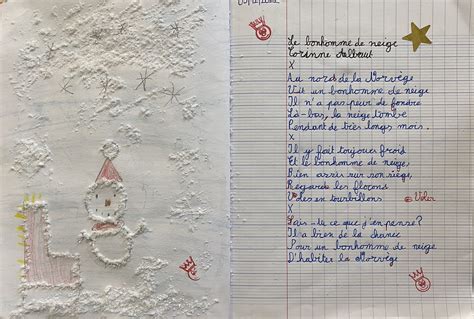 Le bonhomme de neige
Corinne Albaut
X
Au nord de la Norvège
Vit un bonhomme de neige
Il n'a pas peur de fondre
Là-bas, la neige tombe
Pendant de très longs mois.
X
Il y fait toujours froid
Et le bonhomme de neige,
Bien assis sur son siège,
Regarde les flocons
Voles en tourbillons Voler
X
Sais-tu ce que j'en pense?
Il a bien de la chance
Pour un bonhomme de neige
D'habiter la Norvège